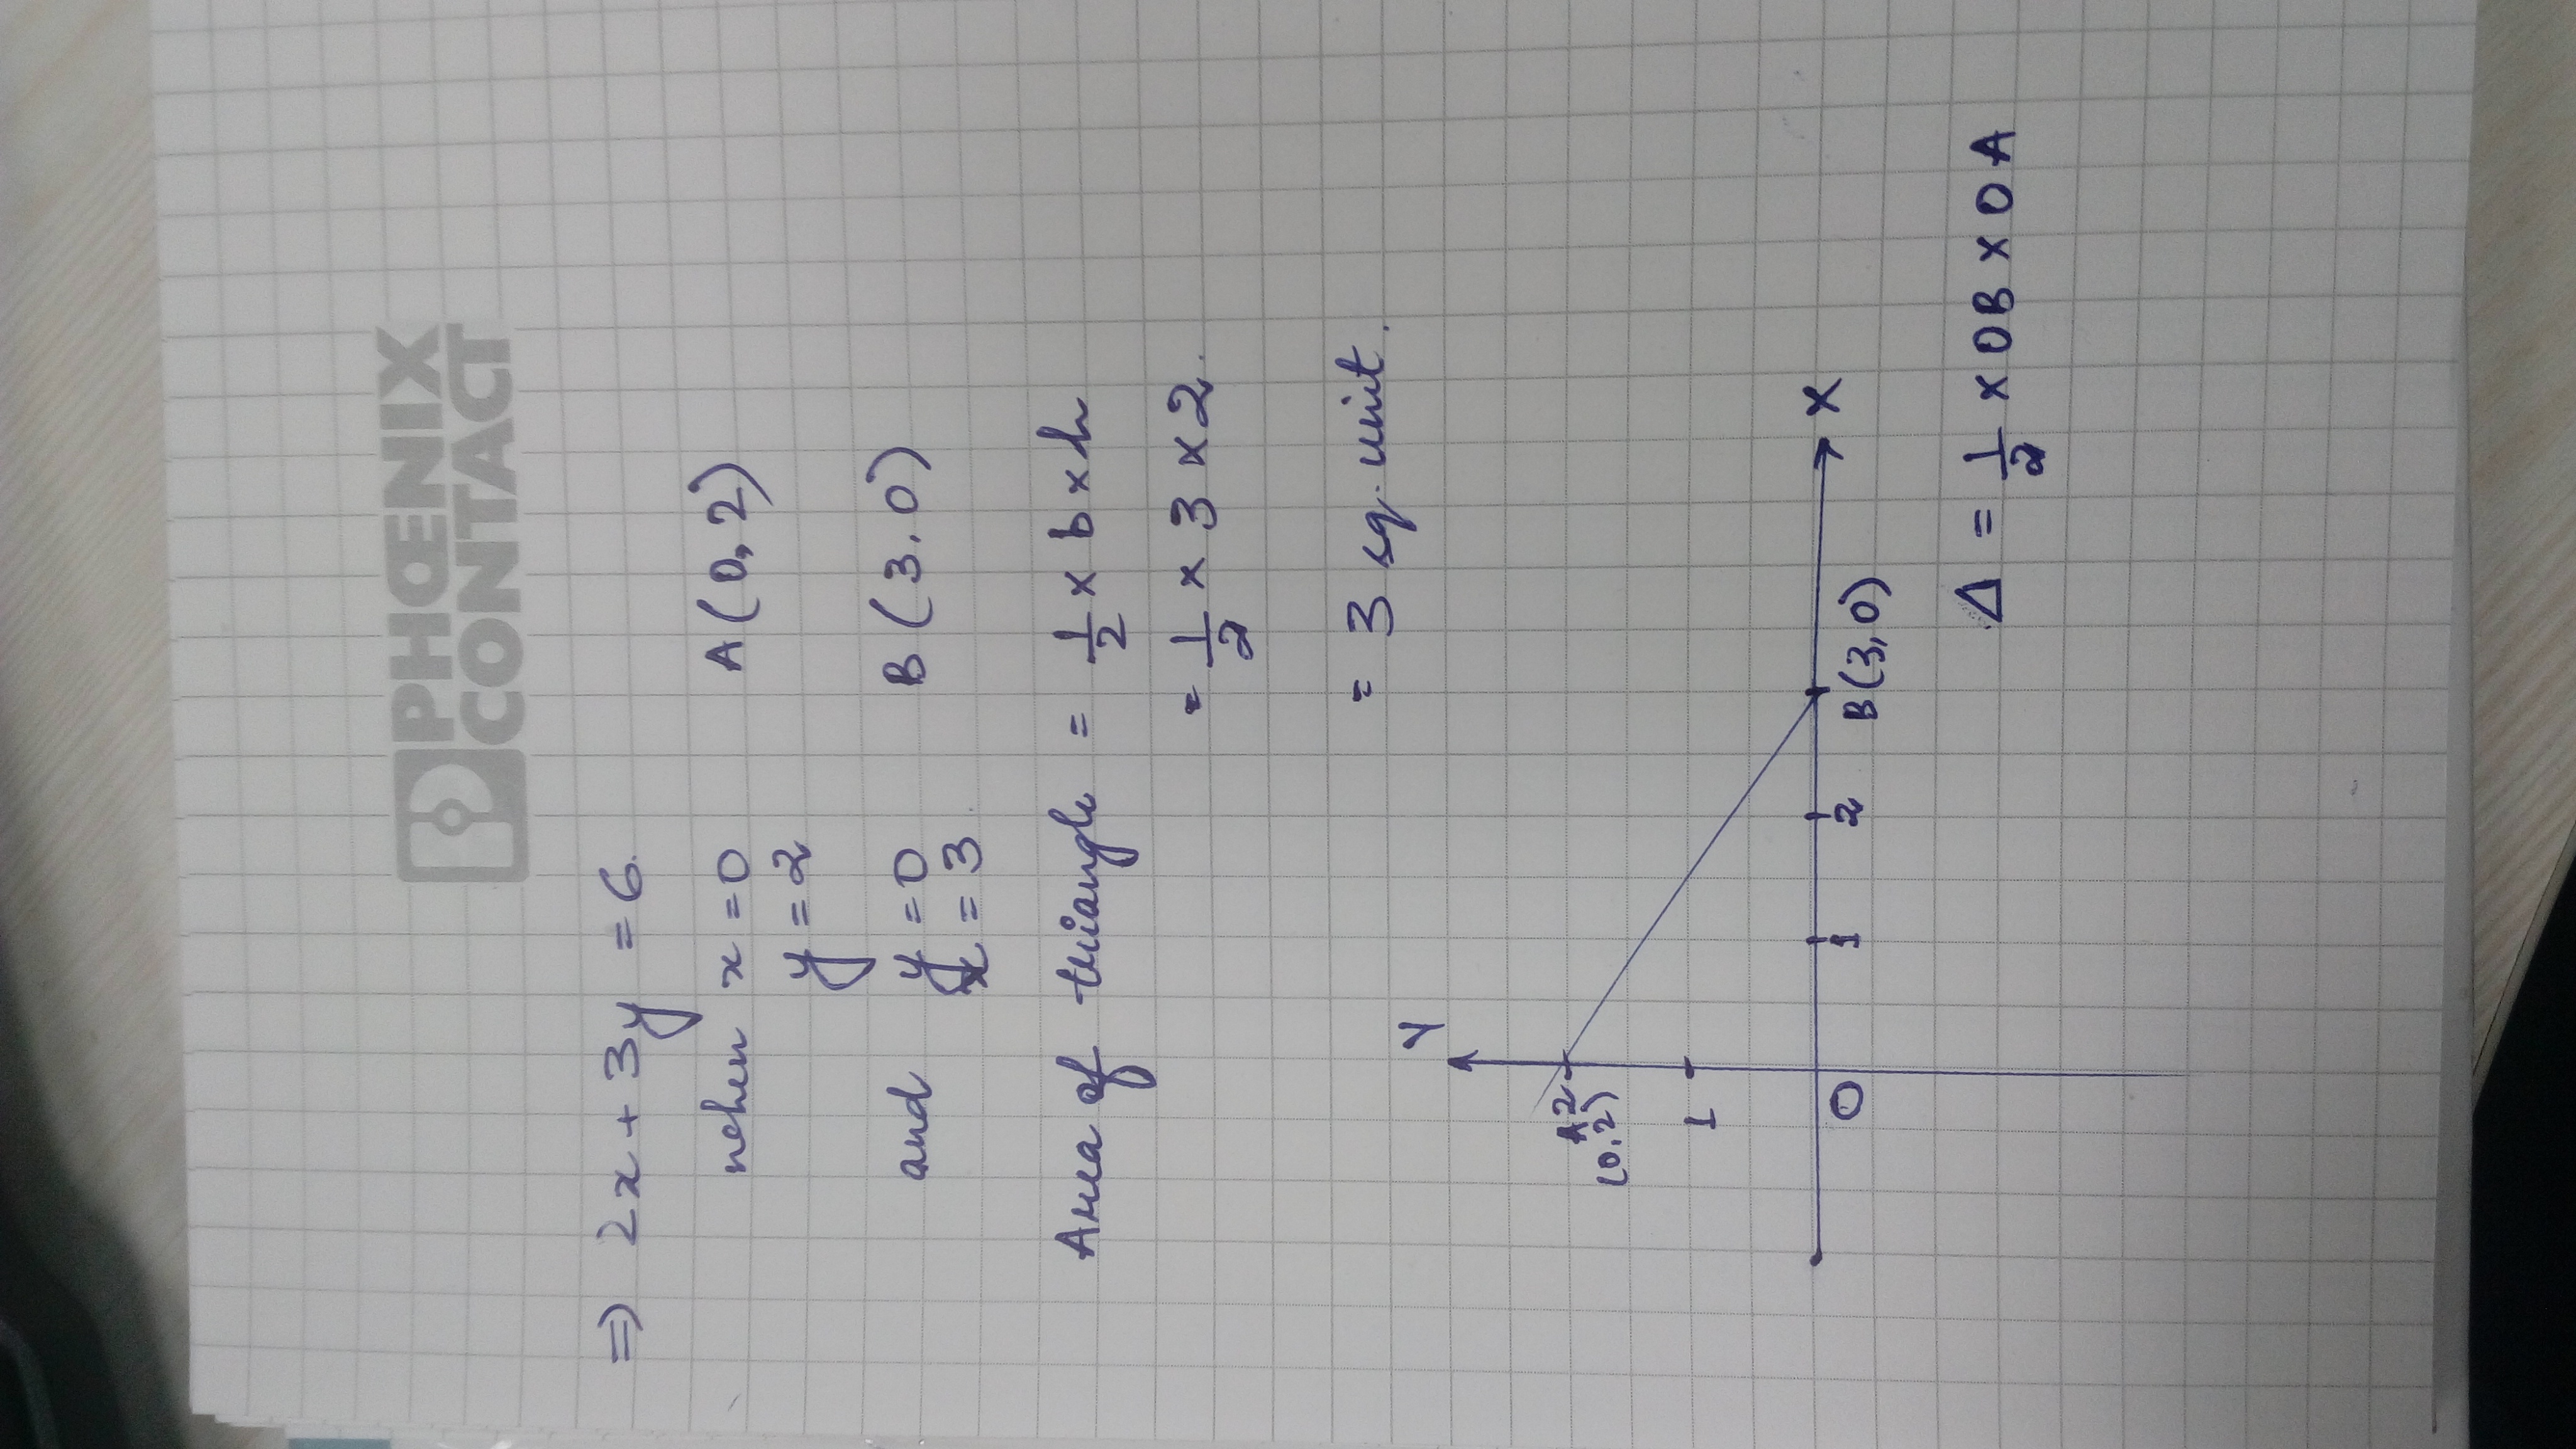 PHŒNIX
CONTACT
⇒ 2x + 3y = 6.
when x = 0 A (0, 2)
y = 2
and y = 0 B (3, 0)
x = 3
Area of triangle = 1/2 × b × h
= 1/2 × 3 × 2.
= 3 sq. unit.
Y
A 2
(0, 2)
1
O
1
2
B (3, 0)
X
Δ = 1/2 × OB × OA